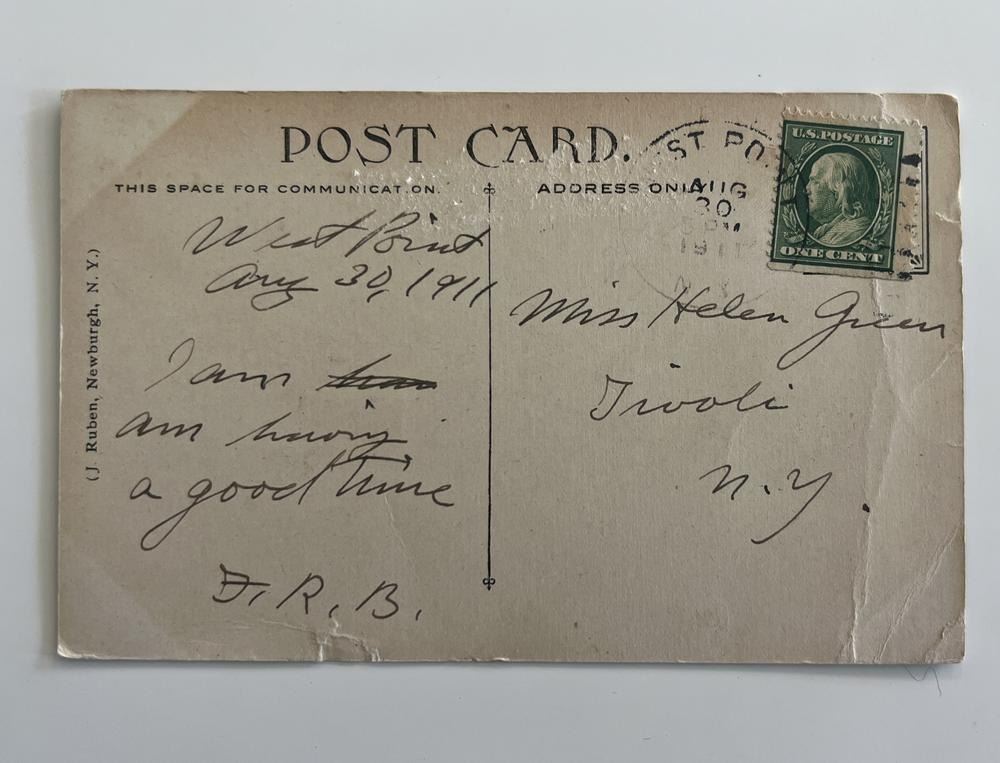 POST CARD.
THIS SPACE FOR COMMUNICAT ON.
ADDRESS ONLY
ST PO
AUG
30
PM
1911
U.S. POSTAGE
ONE CENT
(J Ruben, Newburgh, N. Y.)
West Point
Aug 30, 1911
I am
am having
a good time
F. R. B.
Miss Helen Green
Tivoli
N.Y.